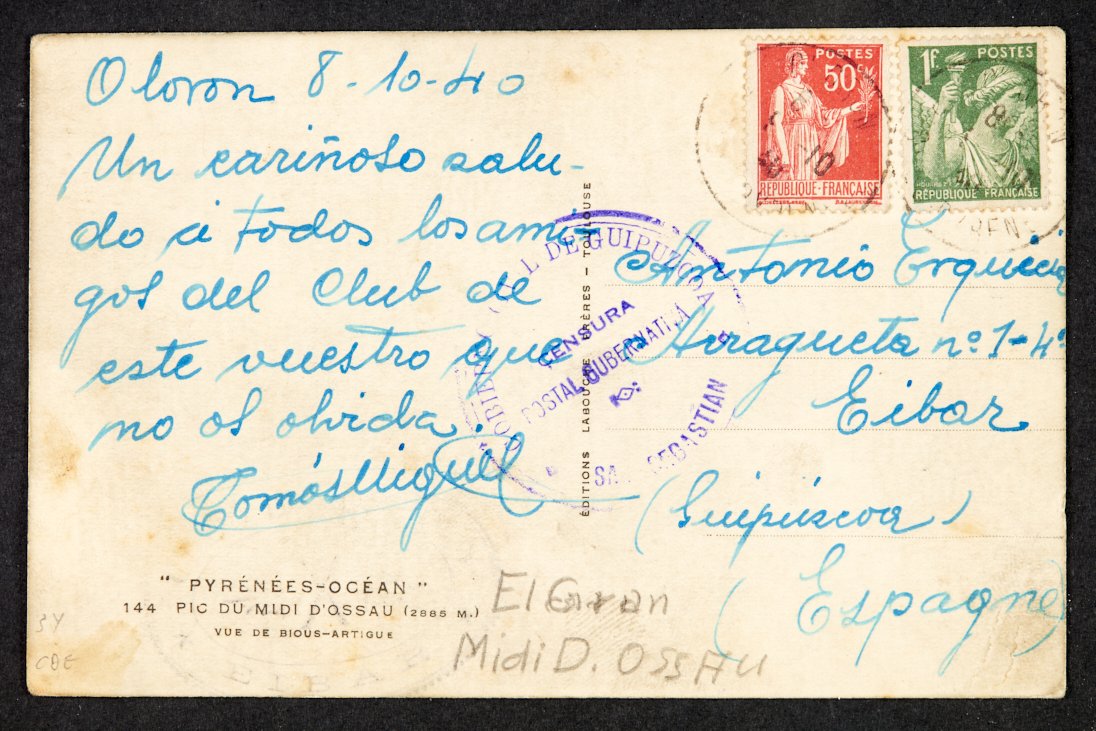 Oloron 8-10-40
Un cariñoso salu-
do a todos los ami-
gos del Club de
este vuestro que
no os olvida.
Tomás Miguel
" PYRÉNÉES-OCÉAN "
144 PIC DU MIDI D'OSSAU (2885 M.)
VUE DE BIOUS-ARTIGUE
El Gran
Midi D. OSSAU
34
CDE
ÉDITIONS LABOUCHE FRÈRES – TOULOUSE
DE GUIPUZCOA
CENSURA
POSTAL GUBERNATIVA
SAN SEBASTIAN
POSTES
50c
REPUBLIQUE-FRANÇAISE
1F
POSTES
RÉPUBLIQUE FRANÇAISE
8
10
Antonio
nº 1-4º
Eibar
(Guipúzcoa)
(Espagne)